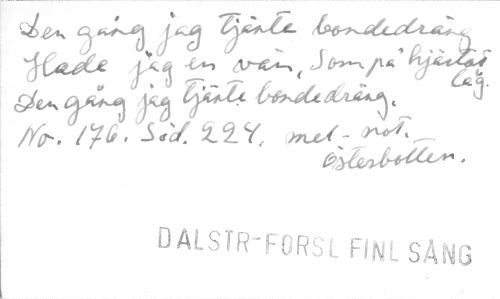 Den gång jag tjänte bondedräng
Hade jag en vän, Som på hjärtat
låg.
Den gång jag tjänte bondedräng.
No. 176. Sid. 224. mel-not.
Österbotten.
DALSTR-FORSL FINL SÅNG